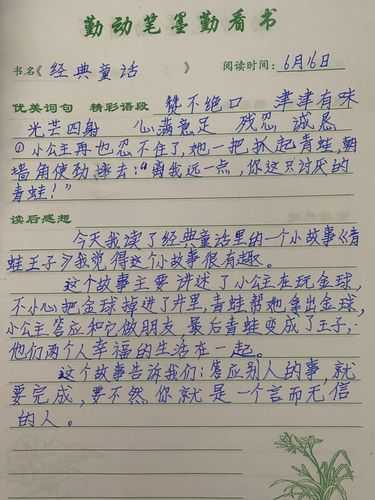 勤动笔墨勤看书
书名《 经典童话 》 阅读时间: 6月16日
优美词句 精彩语段 赞不绝口 津津有味
光芒四射 心满意足 残忍 诚恳
①小公主再也忍不住了,她一把抓起青蛙,朝
墙角使劲摔去:“离我远一点,你这只讨厌的
青蛙!”
读后感想
今天我读了经典童话里的一个小故事《青
蛙王子》我觉得这个小故事很有趣。
这个故事主要讲述了小公主在玩金球,
不小心把金球掉进了井里,青蛙帮她拿出金球,
小公主答应和它做朋友 最后青蛙变成了王子,
他们两个人幸福的生活在一起。
这个故事告诉我们:答应别人的事,就
要完成,要不然,你就是一个言而无信
的人。